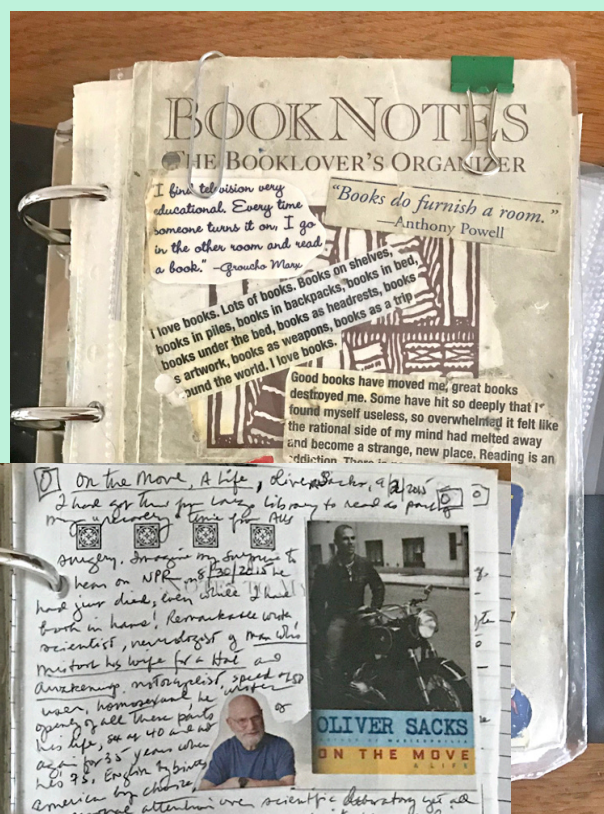 BOOK NOTES
THE BOOKLOVER'S ORGANIZER
I find television very
educational. Every time
someone turns it on, I go
in the other room and read
a book." -Groucho Marx
"Books do furnish a room."
—Anthony Powell
I love books. Lots of books. Books on shelves,
books in piles, books in backpacks, books in bed,
books under the bed, books as headrests, books
s artwork, books as weapons, books as a trip
ound the world. I love books.
Good books have moved me, great books
destroyed me. Some have hit so deeply that I
found myself useless, so overwhelmed it felt like
the rational side of my mind had melted away
and become a strange, new place. Reading is an
addiction. There is
On the Move, A Life, Oliver Sacks, 9/2/2015
I had got this from Library to read as part of
my recovery time from
surgery. Imagine my surprise to
hear on NPR on 8/30/2015 he
had just died, even while I had
book in hand! Remarkable
scientist, neurologist of man who
mistook his wife for a Hat and
Awakenings. motorcyclist, speed
user, homosexual, he
openly of all these parts of
his life,
again for 35 years when
he's 75. English by birth,
American by choice,
attention over scientific laboratory yet all
OLIVER SACKS
ON THE MOVE
A LIFE